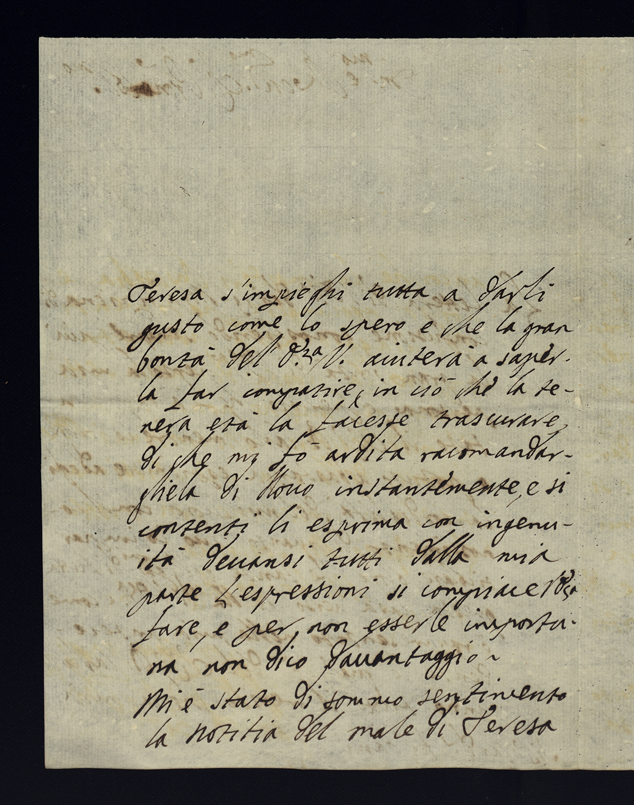 Teresa s'impieghi tutta a darli
gusto come lo spero e che la gran
bontà del V. aiuterà a saper-
la far compatire, in ciò che la te-
nera età la facesse trascurare,
di che mi fò ardita racomandar-
gliela di nouo instantemente, e si
contenti li esprima con ingenu-
ità deuansi tutti dalla mia
parte l'espressioni si compiace
fare, e per non esserle importu-
na non dico dauantaggio
Mi è stato di sommo sentimento
la notitia del male di Teresa